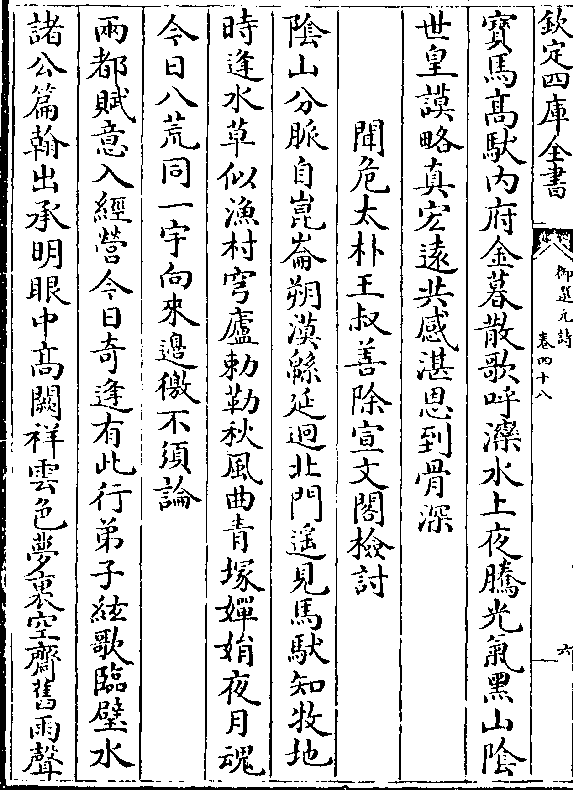 欽定四庫全書
御選元詩
卷四十八
六
寶馬髙馱内府金暮散歌呼灤水上夜騰光氣黑山陰
世皇謨略真宏遠共感湛恩到骨深
聞危太朴王叔善除宣文閣檢討
陰山分脈自崑崙朔漠緜延迥北門遥見馬馱知牧地
時逢水草似漁村穹廬勅勒秋風曲青塚嬋娟夜月魂
今日八荒同一宇向來邊徼不須論
兩都賦意入經營今日奇逢有此行弟子絃歌臨壁水
諸公篇翰出承明眼中髙闕祥雲色夢裏空齋舊雨聲